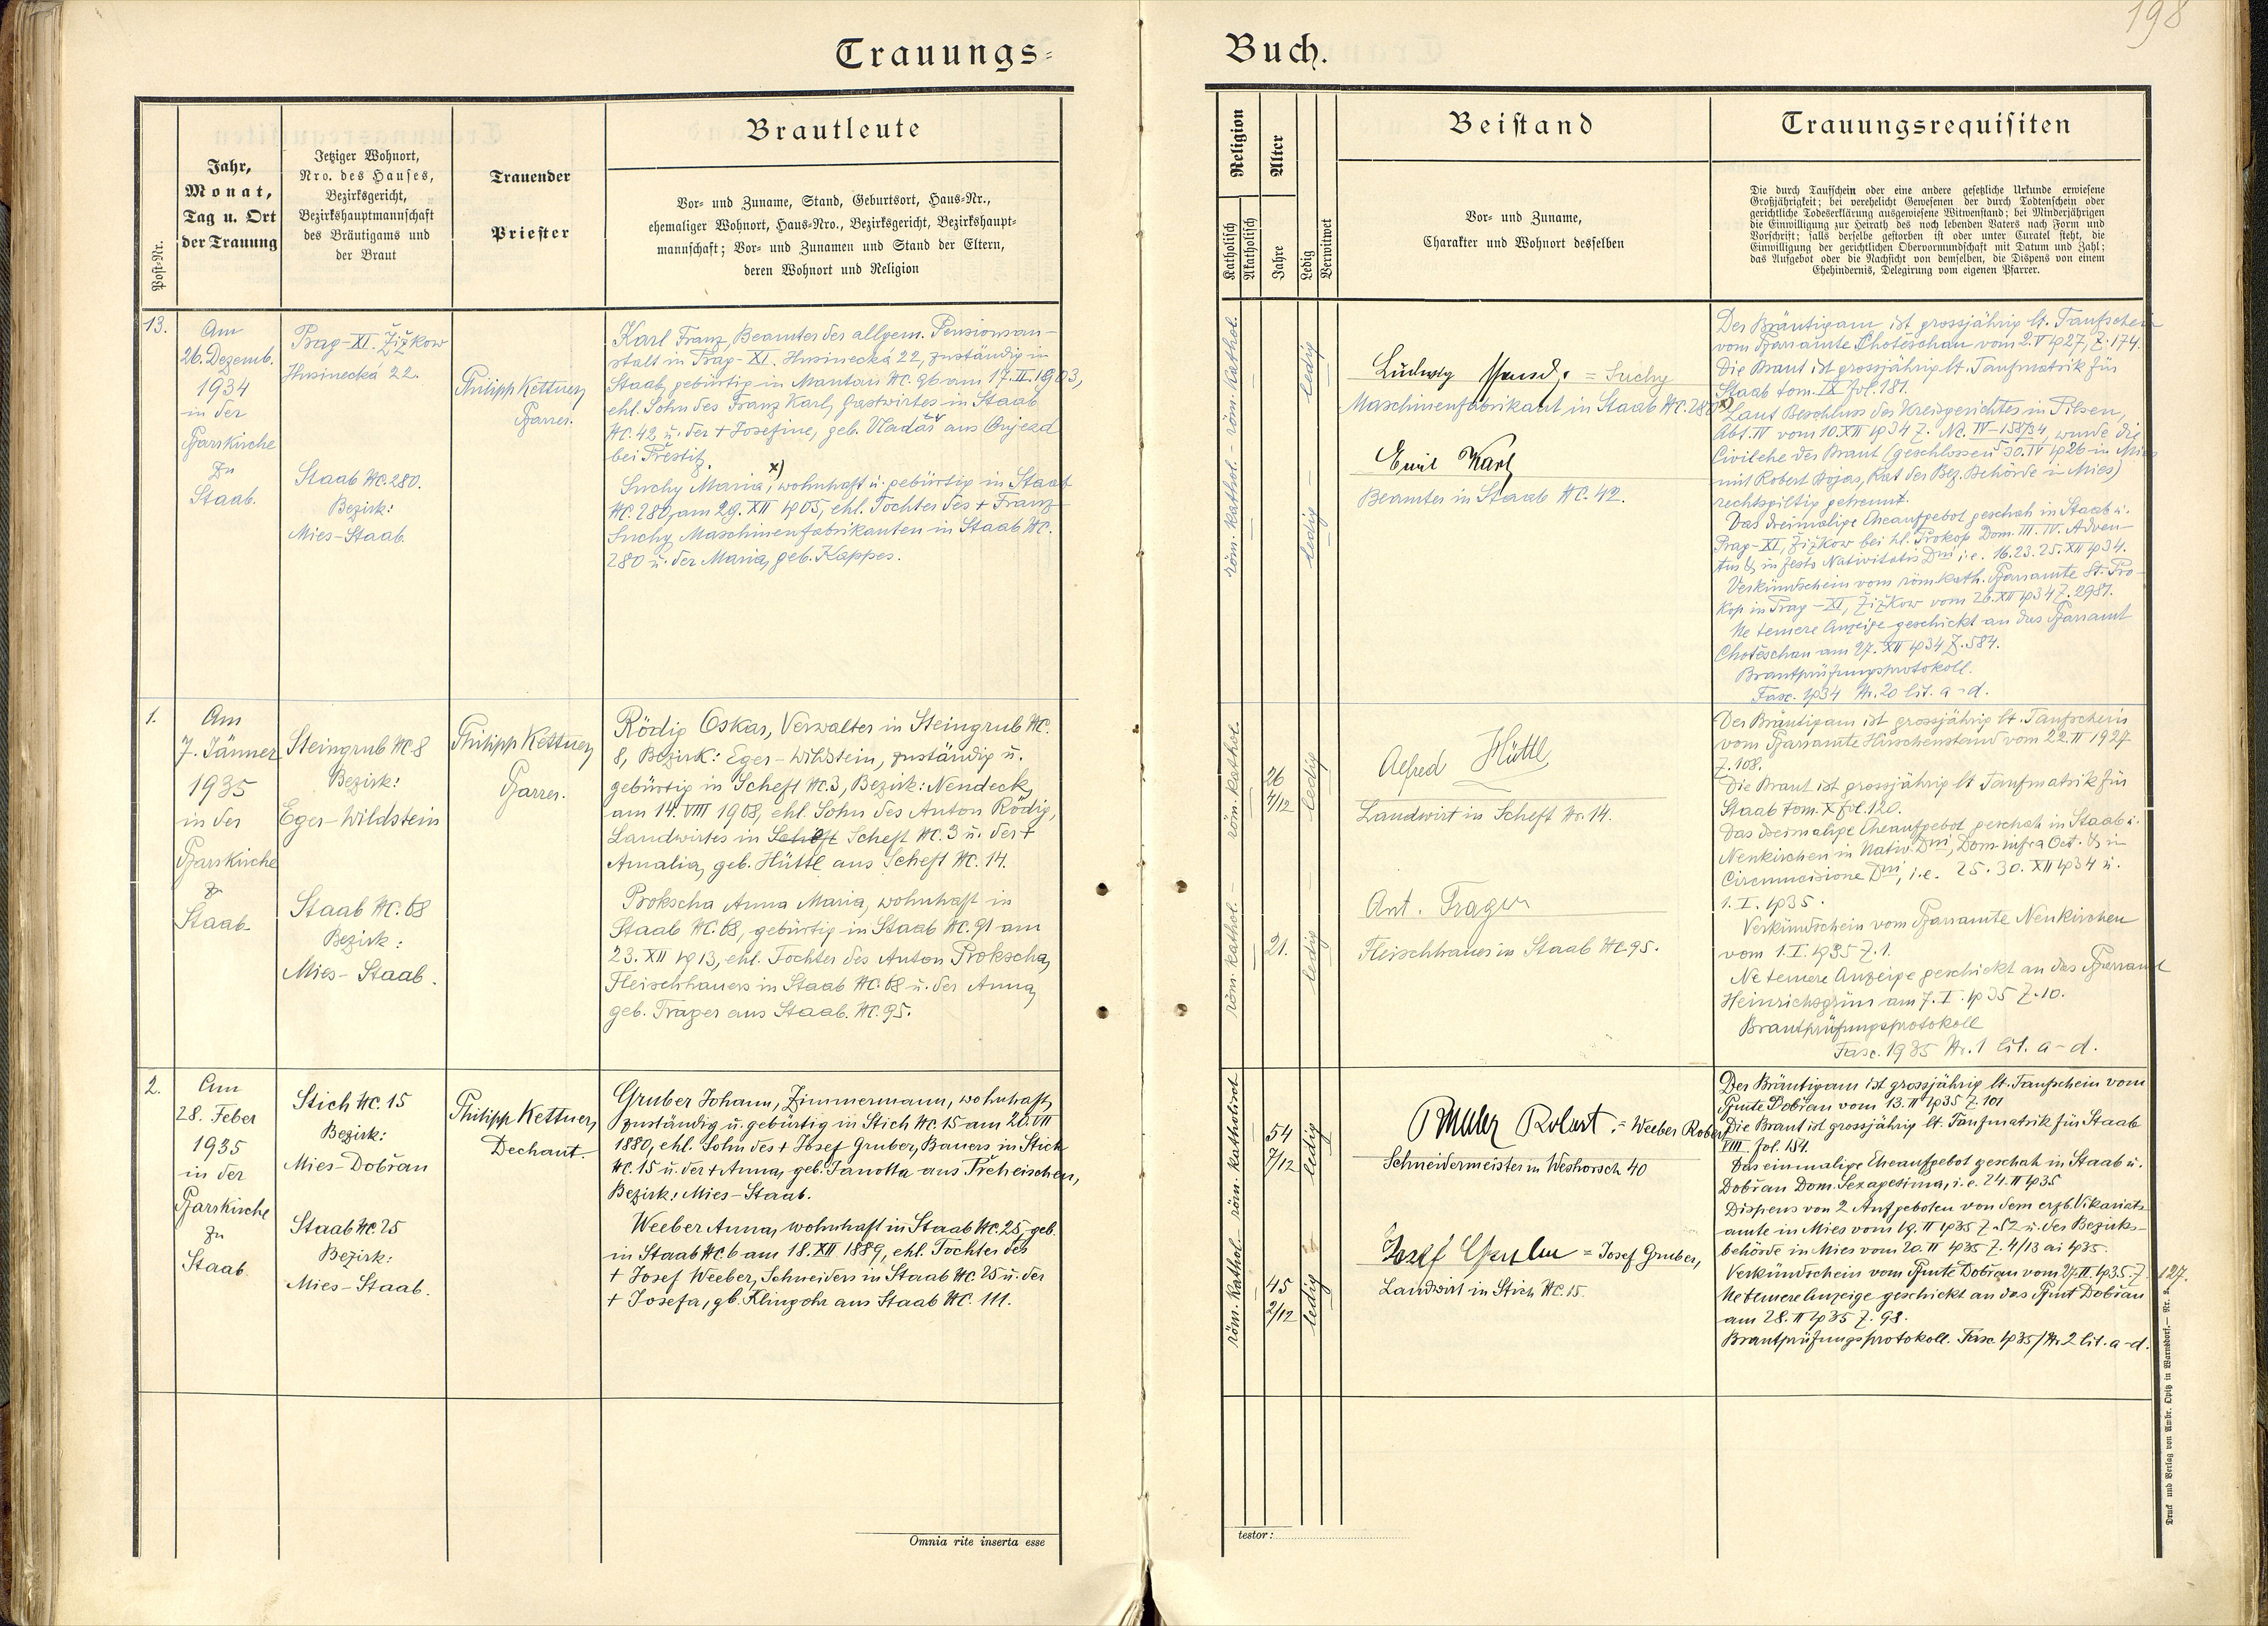 198
Trauungs=
Buch.
Post-Nr.
Jahr,
Monat,
Tag u. Ort
der Trauung
Jetziger Wohnort,
Nro. des Hauses,
Bezirksgericht,
Bezirkshauptmannschaft
des Bräutigams und
der Braut
Trauender
Priester
Brautleute
Vor- und Zuname, Stand, Geburtsort, Haus-Nr.,
ehemaliger Wohnort, Haus-Nro., Bezirksgericht, Bezirkshaupt-
mannschaft; Vor- und Zunamen und Stand der Eltern,
deren Wohnort und Religion
Religion
Katholisch
Akatholisch
Alter
Jahre
Ledig
Verwitwet
Beistand
Vor- und Zuname,
Charakter und Wohnort desselben
Trauungsrequisiten
Die durch Taufschein oder eine andere gesetzliche Urkunde erwiesene
Großjährigkeit; bei verehelicht Gewesenen der durch Todtenschein oder
gerichtliche Todeserklärung ausgewiesene Witwenstand; bei Minderjährigen
die Einwilligung zur Heirath des noch lebenden Vaters nach Form und
Vorschrift; falls derselbe gestorben ist oder unter Curatel steht, die
Einwilligung der gerichtlichen Obervormundschaft mit Datum und Zahl;
das Aufgebot oder die Nachsicht von demselben, die Dispens von einem
Ehehindernis, Delegirung vom eigenen Pfarrer.
13.
Am
26. Dezemb.
1934
in der
Pfarrkirche
zu
Staab.
Prag-XI. Žižkow
Husinecká 22.
Staab NC. 280.
Bezirk:
Mies-Staab.
Philipp Kettner,
Pfarrer.
Karl Franz, Beamter der allgem. Pensionsan-
stalt in Prag-XI. Husinecká 22, zuständig in
Staab, gebürtig in Mantau NC. 96 am 17. II. 1903,
ehl. Sohn des Franz Karl, Gastwirtes in Staab
NC. 42 u. der + Josefine, geb. Vladař aus Aujezd
bei Prestitz.
x)
Suchy Maria, wohnhaft u. gebürtig in Staab
NC. 280, am 29. XII 1905, ehl. Tochter des + Franz
Suchy, Maschinenfabrikanten in Staab NC.
280 u. der Maria, geb. Kappes.
röm. kathol. - röm. kathol.
ledig - ledig
Ludwig = Suchy
Maschinenfabrikant in Staab NC. 280
Emil Karl
Beamter in Staab NC. 42.
Der Bräutigam ist grossjährig lt. Taufschein
vom Pfarramte Choteschau vom 2. V 1927, Z. 174.
Die Braut ist grossjährig lt. Taufmatrik für
Staab tom. IX fol. 181.
x) Laut Beschluss des Kreisgerichtes in Pilsen,
Abt. IV vom 10. XII 1934 Z. Nc. IV-158/34, wurde die
Civilehe der Braut (geschlossen 30. IV 1926 in Mies
mit Robert Bojas, Rat der Bez. Behörde in Mies)
rechtsgiltig getrennt.
Das dreimalige Eheaufgebot geschah in Staab u.
Prag-XI, Žižkow bei hl. Prokop Dom. III. IV. Adven-
tus & in festo Nativitatis Dni, i.e. 16. 23. 25. XII 1934.
Verkündschein vom röm. kath. Pfarramte St. Pro-
kop in Prag-XI, Žižkow vom 26. XII 1934 Z. 2981.
Ne temere Anzeige geschickt an das Pfarramt
Choteschau am 27. XII 1934 Z. 584.
Brautprüfungsprotokoll.
Fasc. 1934 Nr. 20 lit. a-d.
1.
Am
7. Jänner
1935
in der
Pfarrkirche
zu
Staab
Steingrub NC 8
Bezirk:
Eger-Wildstein
Staab NC. 68
Bezirk:
Mies-Staab.
Philipp Kettner,
Pfarrer.
Rödig Oskar, Verwalter in Steingrub NC.
8, Bezirk: Eger-Wildstein, zuständig u.
gebürtig in Scheft NC. 3, Bezirk: Neudeck,
am 14. VIII 1908, ehl. Sohn des Anton Rödig,
Landwirtes in Scheft Scheft NC. 3 u. der +
Amalia, geb. Hüttl aus Scheft NC. 14.
Prokscha Anna Maria, wohnhaft in
Staab NC. 68, gebürtig in Staab NC. 91 am
23. XII 1913, ehl. Tochter des Anton Prokscha,
Fleischhauers in Staab NC. 68 u. der Anna,
geb. Trager aus Staab NC. 95.
röm. kathol. - röm. kathol.
26
4/12
21.
ledig - ledig
Alfred Hüttl
Landwirt in Scheft Nr. 14.
Ant. Trager
Fleischhauer in Staab NC. 95.
Der Bräutigam ist grossjährig lt. Taufschein
vom Pfarramte Hirschenstand vom 22. II 1927
Z. 108.
Die Braut ist grossjährig lt Taufmatrik für
Staab tom. X fol. 120.
Das dreimalige Eheaufgebot geschah in Staab u.
Neukirchen in Nativ. Dni, Dom. infra Oct. & in
Circumcisione Dni, i.e. 25. 30. XII 1934 u.
1. I. 1935.
Verkündschein vom Pfarramte Neukirchen
vom 1. I. 1935 Z. 1.
Ne temere Anzeige geschickt an das Pfarramt
Heinrichsgrün am 7. I. 1935 Z. 10.
Brautprüfungsprotokoll
Fasc. 1935 Nr. 1 lit. a-d.
2.
Am
28. Feber
1935
in der
Pfarrkirche
zu
Staab
Stich NC. 15
Bezirk:
Mies-Dobřan
Staab NC. 25
Bezirk:
Mies-Staab.
Philipp Kettner,
Dechant.
Gruber Johann, Zimmermann, wohnhaft,
zuständig u. gebürtig in Stich NC. 15 am 20. VII
1880, ehl. Sohn des + Josef Gruber, Bauers in Stich
NC. 15 u. der + Anna, geb. Janotta aus Treheischen,
Bezirk: Mies-Staab.
Weeber Anna, wohnhaft in Staab NC. 25, geb.
in Staab NC. 6 am 18. XII. 1889, ehl. Tochter des
+ Josef Weeber, Schneiders in Staab NC. 25 u. der
+ Josefa, gb. Klingohr aus Staab NC. 111.
röm. kathol. - röm. katholisch
54
7/12
45
2/12
ledig - ledig
Robert = Weeber Robert
Schneidermeister in Weshorsch 40
Josef Gruber = Josef Gruber,
Landwirt in Stich NC. 15.
Der Bräutigam ist grossjährig lt. Taufschein vom
Pfmte Dobřan vom 13. II 1935 Z. 101
Die Braut ist grossjährig lt. Taufmatrik für Staab
VIII. fol. 154.
Das einmalige Eheaufgebot geschah in Staab u.
Dobřan Dom. Sexagesima, i.e. 24. II 1935
Dispens von 2 Aufgeboten von dem erzb. Vikariats-
amte in Mies vom 19. II 1935 Z. 52 u. der Bezirks-
behörde in Mies vom 20. II 1935 Z. 4/13 ai 1935.
Verkündschein vom Pfmte Dobřan vom 27. II. 1935. Z. 127.
Ne temere Anzeige geschickt an das Pfmt Dobřan
am 28. II 1935 Z. 98.
Brautprüfungsprotokoll. Fasc. 1935/Nr. 2 lit. a-d.
Omnia rite inserta esse
testor:
Druck und Verlag von Ambr. Opitz in Warnsdorf.— Nr. 2.